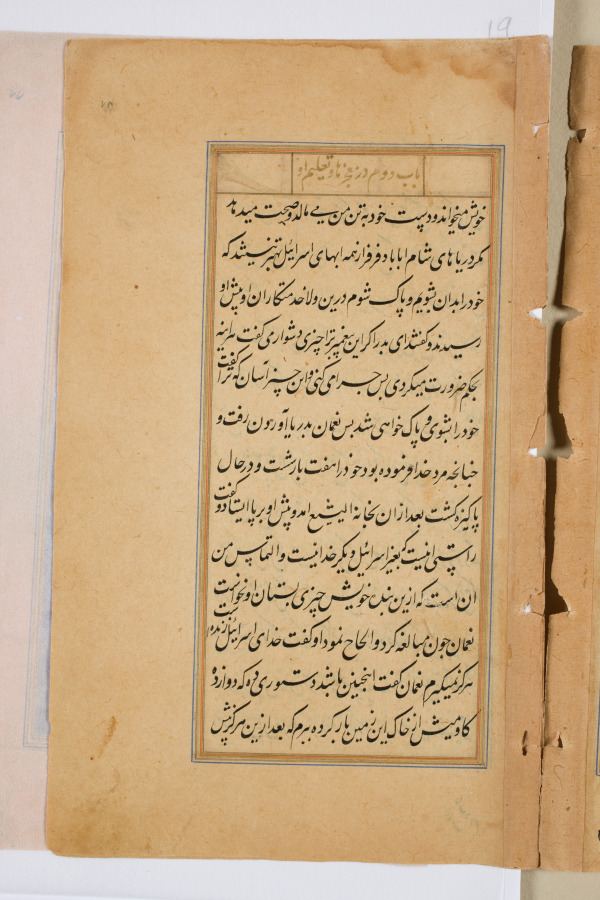 19
باب دوم در معجزها و تعلیم او
خویش میخواند و دست خود به تن من می مالد و صحت میدهد
مگر دریاهای شام ابابا و فرفر از همه ابهای اسرائیل بهتر نیستند که
خود را بدان بشویم و پاک شوم درین ولا خدمتکاران او پیش او
رسیدند و گفتند ای پدر اگر این پیغمبر ترا چیزی دشوار می گفت هراینه
بحکم ضرورت میکردی پس چرا نمی کنی و این چیز آسان که ترا گفت
خود را بشوی و پاک خواهی شد پس نعمان بدریا آوردون رفت و
چنانچه مرد خدا فرموده بود خود را هفت بار شست و در حال
پاکیزه گشت بعد از ان بخانه الیشع امد و پیش او بر پا ایستاد و گفت
راستی اینست که بغیر اسرائیل دیگر خدا نیست و التماس من
ان است که ازین بنده خویش چیزی بستان او نخواست
نعمان چون مبالغه کرد و الحاح نمود او گفت خدای اسرائیل زنده است
هرگز نمیگیرم نعمان گفت اینچنین باشد دستوری ده که دوازده
کاومیش از خاک این زمین بار کرده ببرم که بعد ازین هرگز پیش